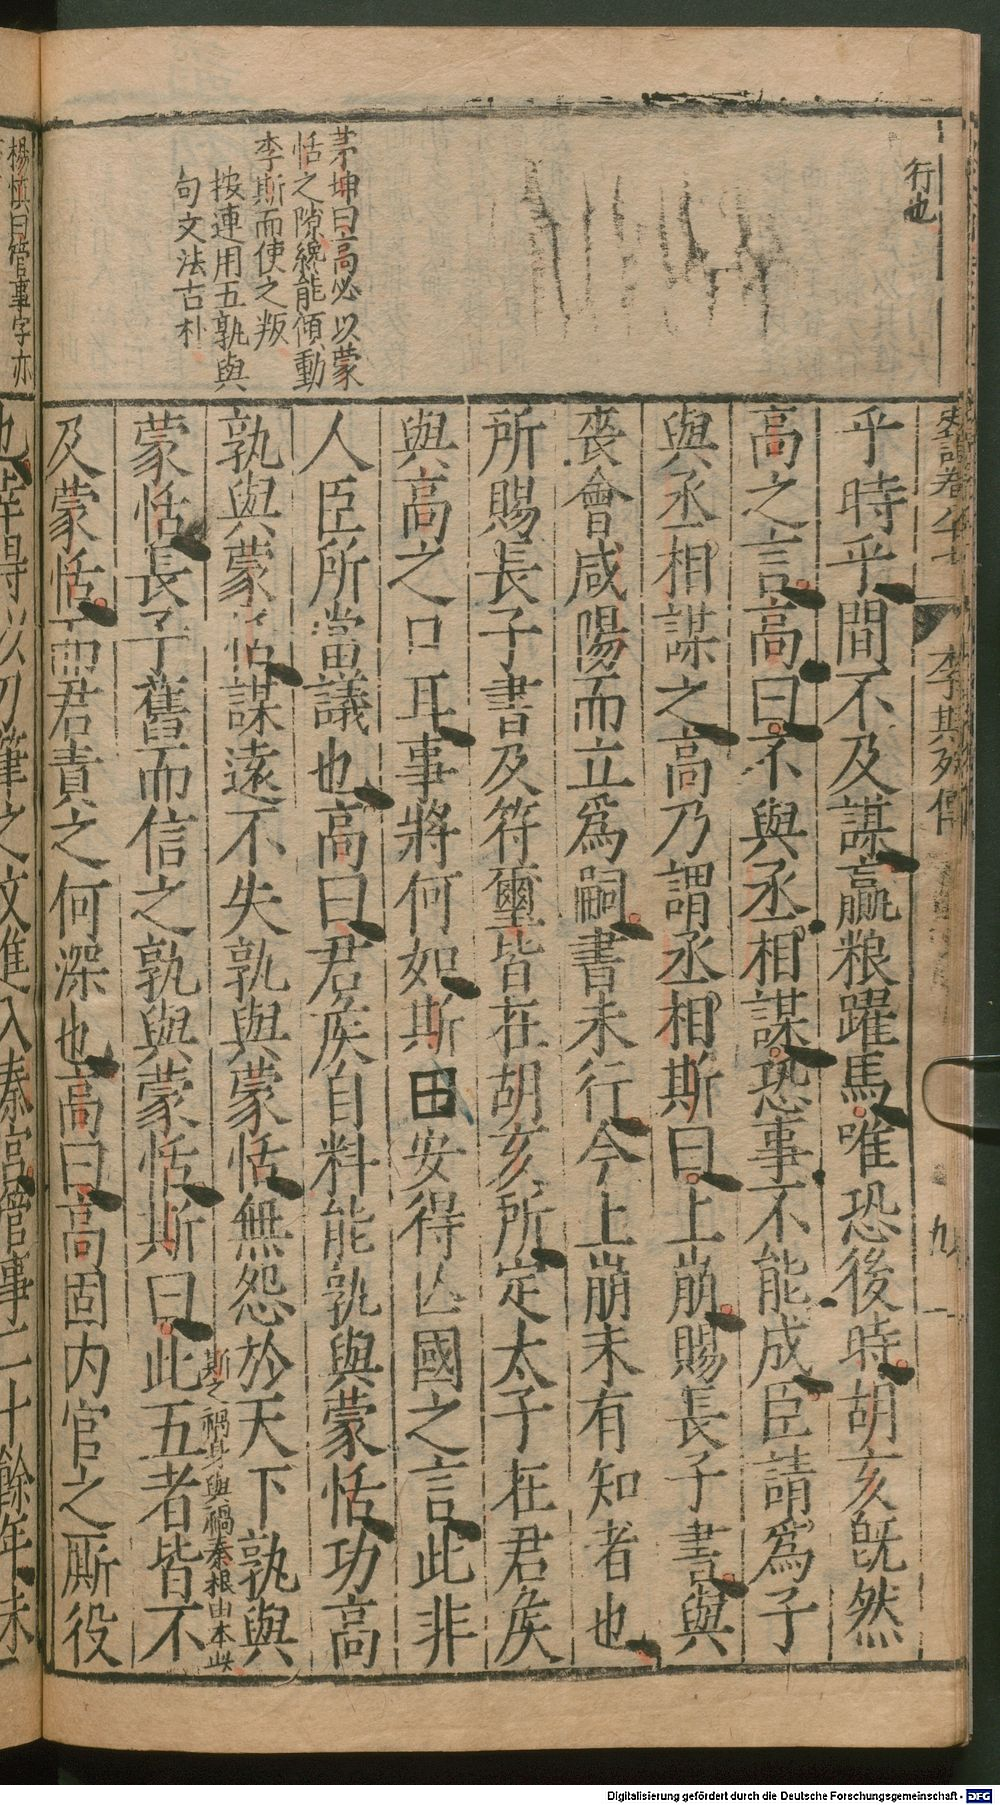 行也
茅坤曰高必以蒙
恬之隙纔能傾動
李斯而使之叛
按連用五孰與
句文法古朴
史記卷八十七
李斯列傳
九
乎時乎間不及謀贏粮躍馬唯恐後時胡亥既然
高之言高曰不與丞相謀恐事不能成臣請爲子
與丞相謀之高乃謂丞相斯曰上崩賜長子書與
喪會咸陽而立爲嗣書未行今上崩未有知者也
所賜長子書及符璽皆在胡亥所定太子在君矦
與高之口耳事將何如斯曰安得亾國之言此非
人臣所當議也高曰君矦自料能孰與蒙恬功高
孰與蒙恬謀遠不失孰與蒙恬無怨於天下孰與
蒙恬長子舊而信之孰與蒙恬斯曰此五者皆不
斯之禍身與禍秦根由本此
及蒙恬而君責之何深也高曰高固内官之厮役
楊慎曰管事字亦
也幸得以刀筆之文進入秦宫管事二十餘年未
Digitalisierung gefördert durch die Deutsche Forschungsgemeinschaft - DFG